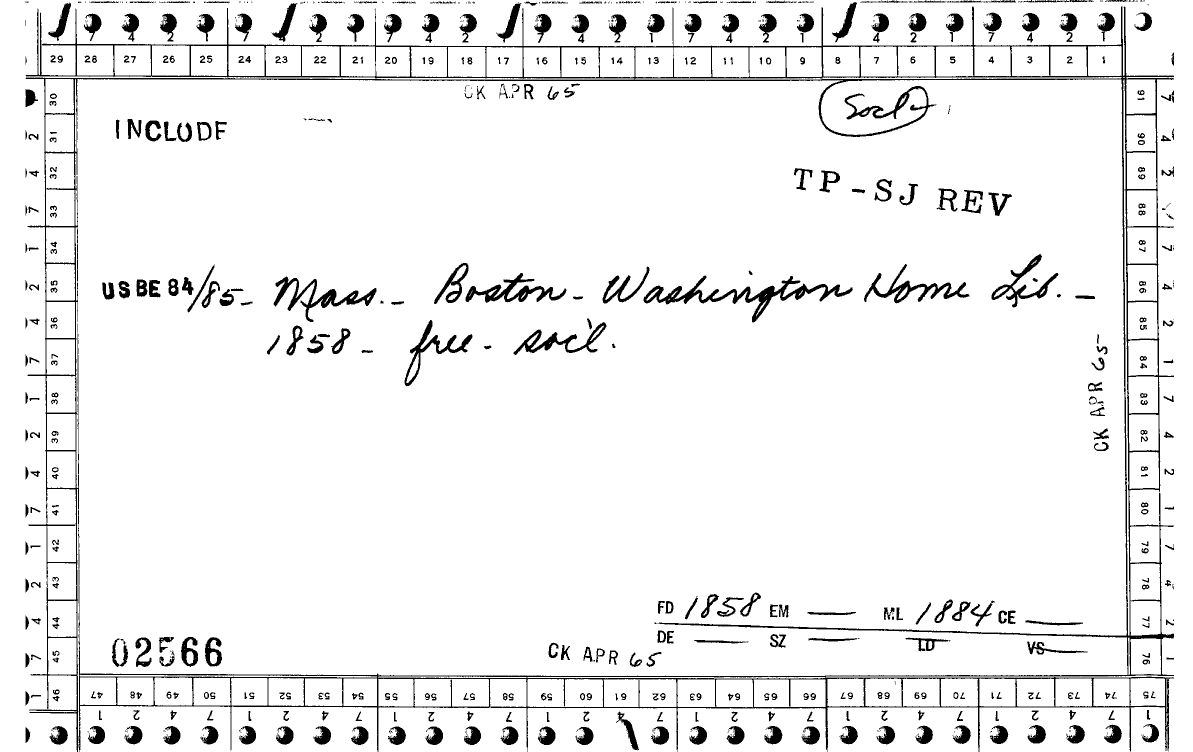 7 4 2 1 7 4 2 1 7 4 2 1 7 4 2 1 7 4 2 1 7 4 2 1 7 4 2 1
29 28 27 26 25 24 23 22 21 20 19 18 17 16 15 14 13 12 11 10 9 8 7 6 5 4 3 2 1
CK APR 65
Socl
INCLUDE
TP-SJ REV
USBE 84/85- Mass.- Boston- Washington Home Lib.-
1858- free- soc'l.
CK APR 65
FD 1858 EM ML 1884 CE
DE SZ LD VS
02566
CK APR 65
30 31 32 33 34 35 36 37 38 39 40 41 42 43 44 45 46
2 4 7 1 2 4 7 1 2 4 7 1 2 4 7 1
91 90 89 88 87 86 85 84 83 82 81 80 79 78 77 76 75
47 48 49 50 51 52 53 54 55 56 57 58 59 60 61 62 63 64 65 66 67 68 69 70 71 72 73 74 75
1 2 4 7 1 2 4 7 1 2 4 7 1 2 4 7 1 2 4 7 1 2 4 7 1 2 4 7 1